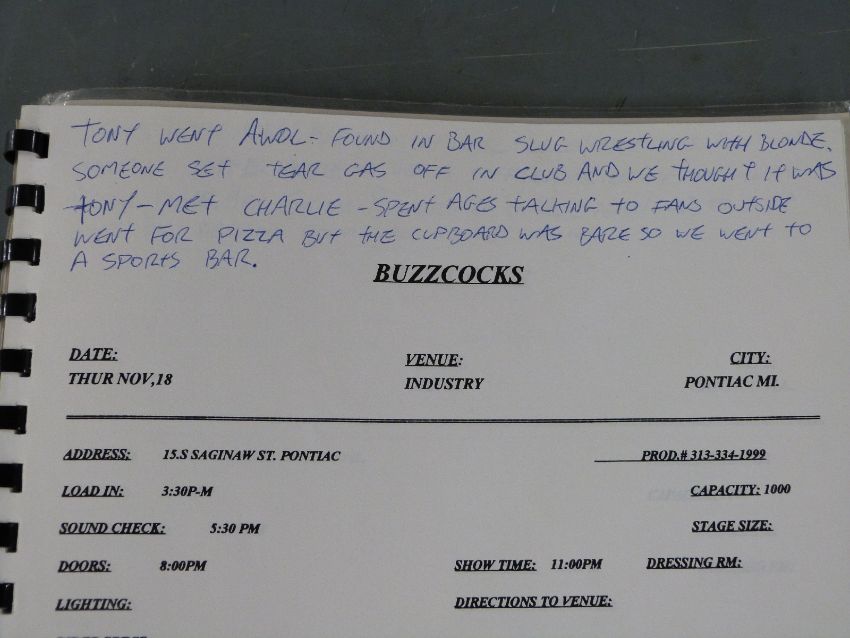 TONY WENT AWOL - FOUND IN BAR SLUG WRESTLING WITH BLONDE.
SOMEONE SET TEAR GAS OFF IN CLUB AND WE THOUGHT IT WAS
TONY - MET CHARLIE - SPENT AGES TALKING TO FANS OUTSIDE
WENT FOR PIZZA BUT THE CUPBOARD WAS BARE SO WE WENT TO
A SPORTS BAR.
BUZZCOCKS
DATE: VENUE: CITY:
THUR NOV,18 INDUSTRY PONTIAC MI.
ADDRESS: 15.S SAGINAW ST. PONTIAC PROD.# 313-334-1999
LOAD IN: 3:30P-M CAPACITY: 1000
SOUND CHECK: 5:30 PM STAGE SIZE:
DOORS: 8:00PM SHOW TIME: 11:00PM DRESSING RM:
LIGHTING: DIRECTIONS TO VENUE: